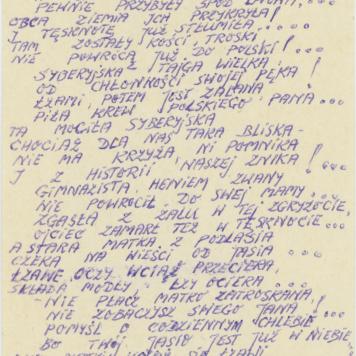 PEWNIE PRZYBYŁA SPOD
OBCA ZIEMIA ICH PRZYKRYŁA!
I TĘSKNOTĘ JUŻ STŁUMIŁA....
TAM ZOSTAŁY KOŚCI, TROSKI
NIE POWRÓCĄ JUŻ DO POLSKI!...
SYBERYJSKA TAJGA WIELKA,
OD CHŁONNOŚCI SWOJEJ PĘKA!
ŁZAMI, POTEM JEST ZALANA,
PIŁA KREW POLSKIEGO PANA...
TA MOGIŁA SYBERYJSKA
CHOCIAŻ DLA NAS TAKA BLISKA-
NIE MA KRZYŻA, NI POMNIKA
I Z HISTORII NASZEJ ZNIKA!
GIMNAZISTA, HENIEM ZWANY
NIE POWRÓCIŁ DO SWEJ MAMY...
ZGASŁA Z ŻALU W TEJ ZGRYZOCIE,
OJCIEC ZAMARŁ TEŻ W TĘSKNOCIE...
A STARA MATKA Z PODLASIA
CZEKA NA WIEŚCI OD JASIA ...
ŁZAWE OCZY WCIĄŻ PRZECIERA,
SKŁADA MODŁY, ŁZY OCIERA....
- NIE PŁACZ MATKO ZATROSKANA,
NIE ZOBACZYSZ SWEGO JANA!
POMYŚL O CODZIENNYM CHLEBIE
BO TWÓJ JASIO JEST JUŻ W NIEBIE